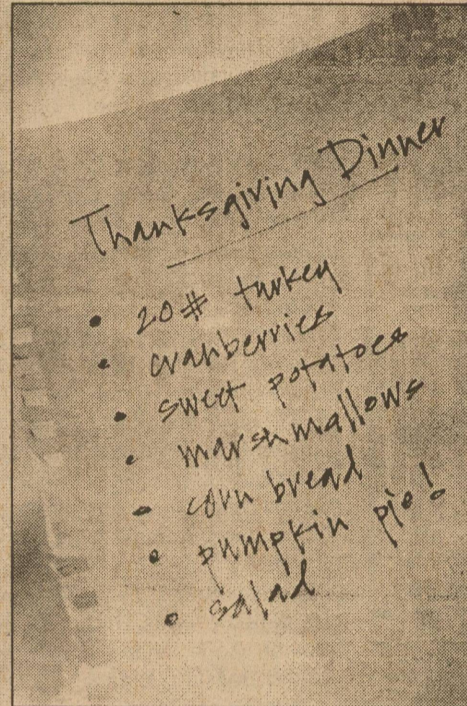 Thanksgiving Dinner
• 20# turkey
• cranberries
• sweet potatoes
• marshmallows
• corn bread
• pumpkin pie!
• salad